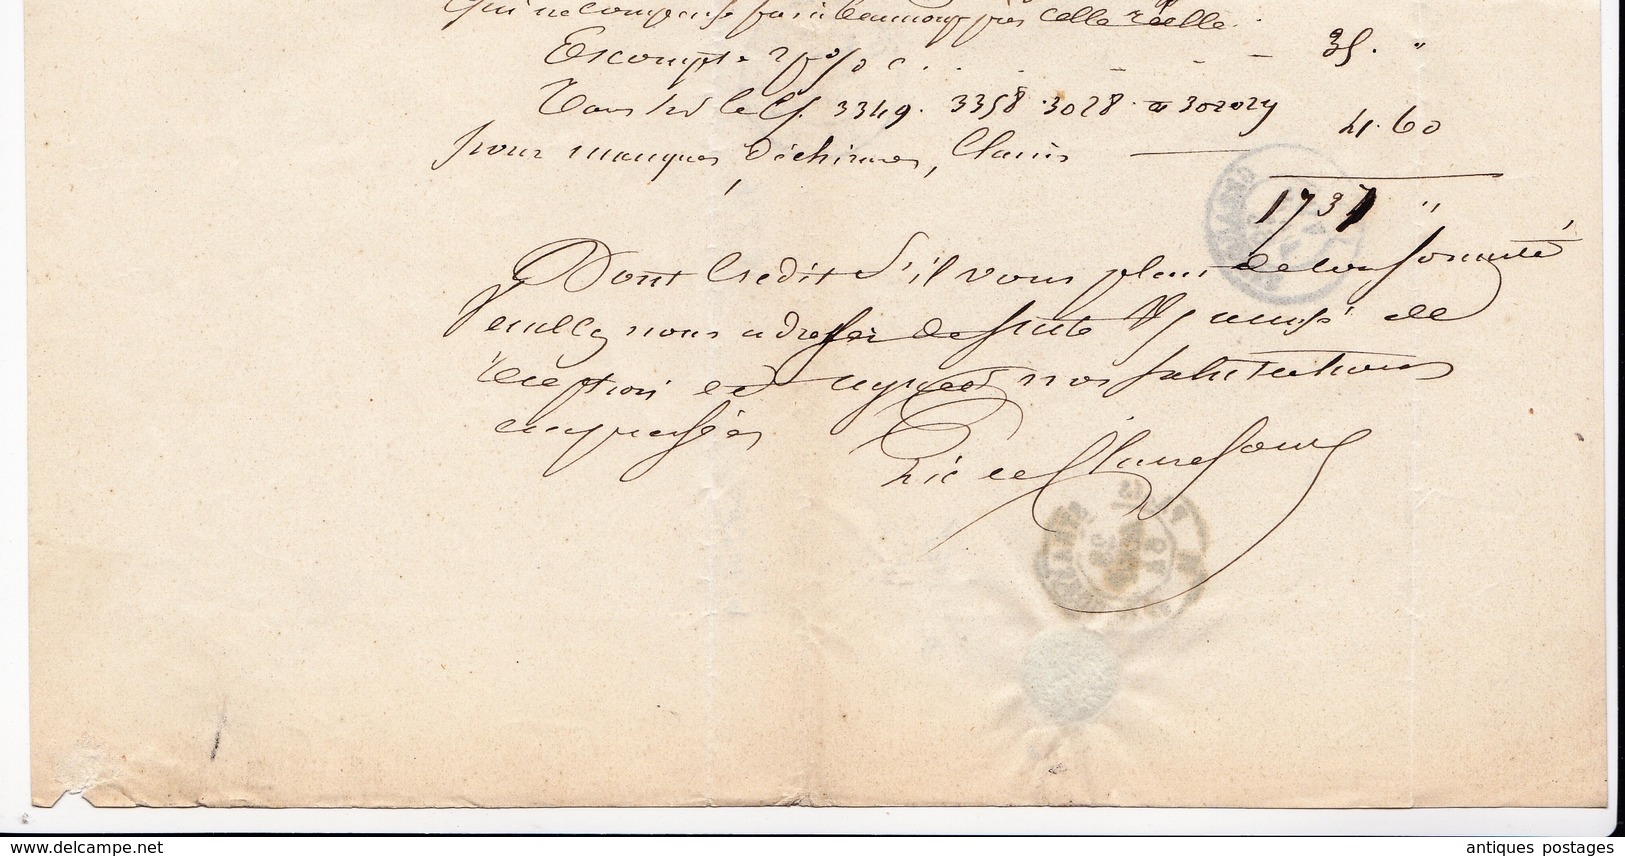 qui ne compense pas à beaucoup près celle réelle
Escompte 2 p % c. . . . - - - 35. "
Tare sur le Cf. 3349. 3358. 3028. a 302024
pour manques, déchirures, 41.60
1737 "
Dont Crédit s'il vous plait de conformité
Veuillez nous adresser de suite de
réception et agréez nos salutations
empressées
www.delcampe.net antiques postages